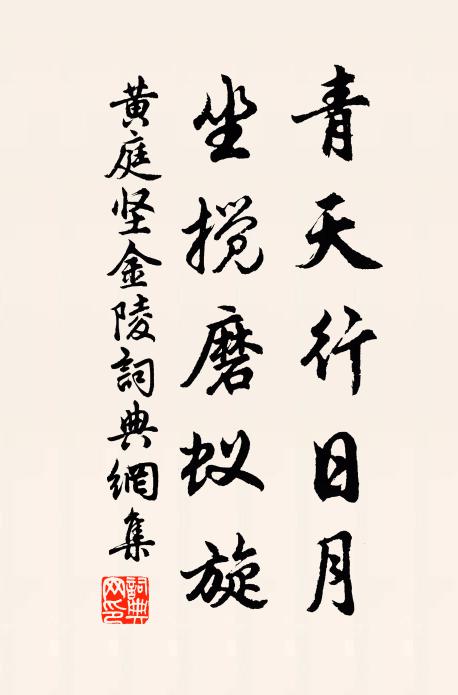 青天行日月
坐揽磨蚁旋
黄庭坚金陵詞典網集
詞典网印